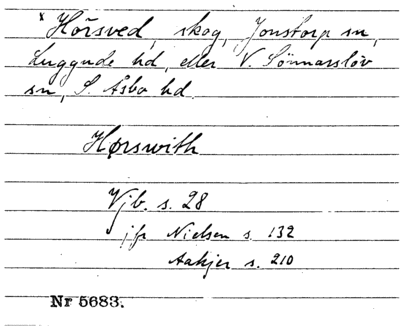 x Hörsved, skog, Jonstorp sn,
Luggude hd, eller V. Sönnarslöv
sn, S. Åsbo hd.
Hørswith
Vjb. s. 28
jfr Nielsen s. 132
Aakjer s. 210
Nr 5683.